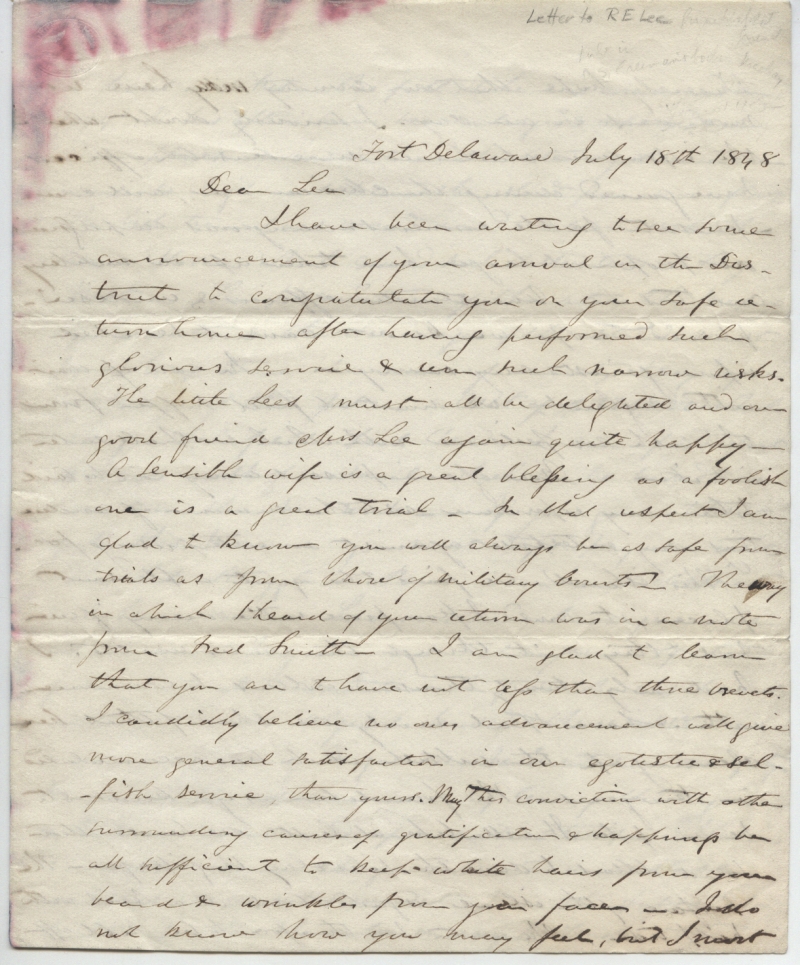 Letter to R E Lee
Fort Delaware July 18th 1848
Dear Lee
I have been waiting to see some
announcement of your arrival in the Dis-
trict to congratulate you on your safe re-
turn home after having performed such
glorious service & run such narrow risks.
The little Lees must all be delighted and our
good friend Mrs Lee again quite happy—
A sensible wife is a great blessing as a foolish
one is a great trial – In that respect I am
glad to know you will always be as safe from
trials as from those of military Courts – The way
in which I heard of your return was in a note
from Fred Smith – I am glad to learn
that you are to have not less than three brevets.
I candidly believe no ones advancement will give
more general satisfaction in our egotistic & sel-
-fish service, than yours. May this conviction with other
surrounding causes of gratification & happiness be
all sufficient to keep white hairs from your
beard & wrinkles from your face – I do
not know how you may feel, but I must